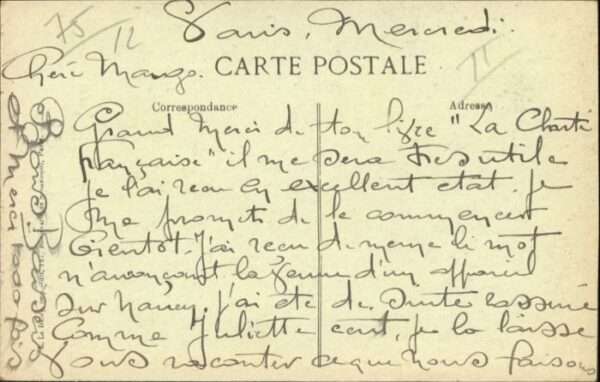 75
12
Paris, Mercredi.
11
Chère Mango. CARTE POSTALE
Correspondance Adresse
Grand Merci de ton livre "La Charité
française" il me sera très utile
je l'ai reçu en excellent état. Je
me promets de le commencer
bientôt. J'ai reçu de même le mot
n'annonçant la venue d'un appareil
sur Nancy. j'ai été de suite rassuré
Comme Juliette écrit, je la laisse
vous raconter ce que nous faisons
et Merci 1000 fois
Bons Baisers